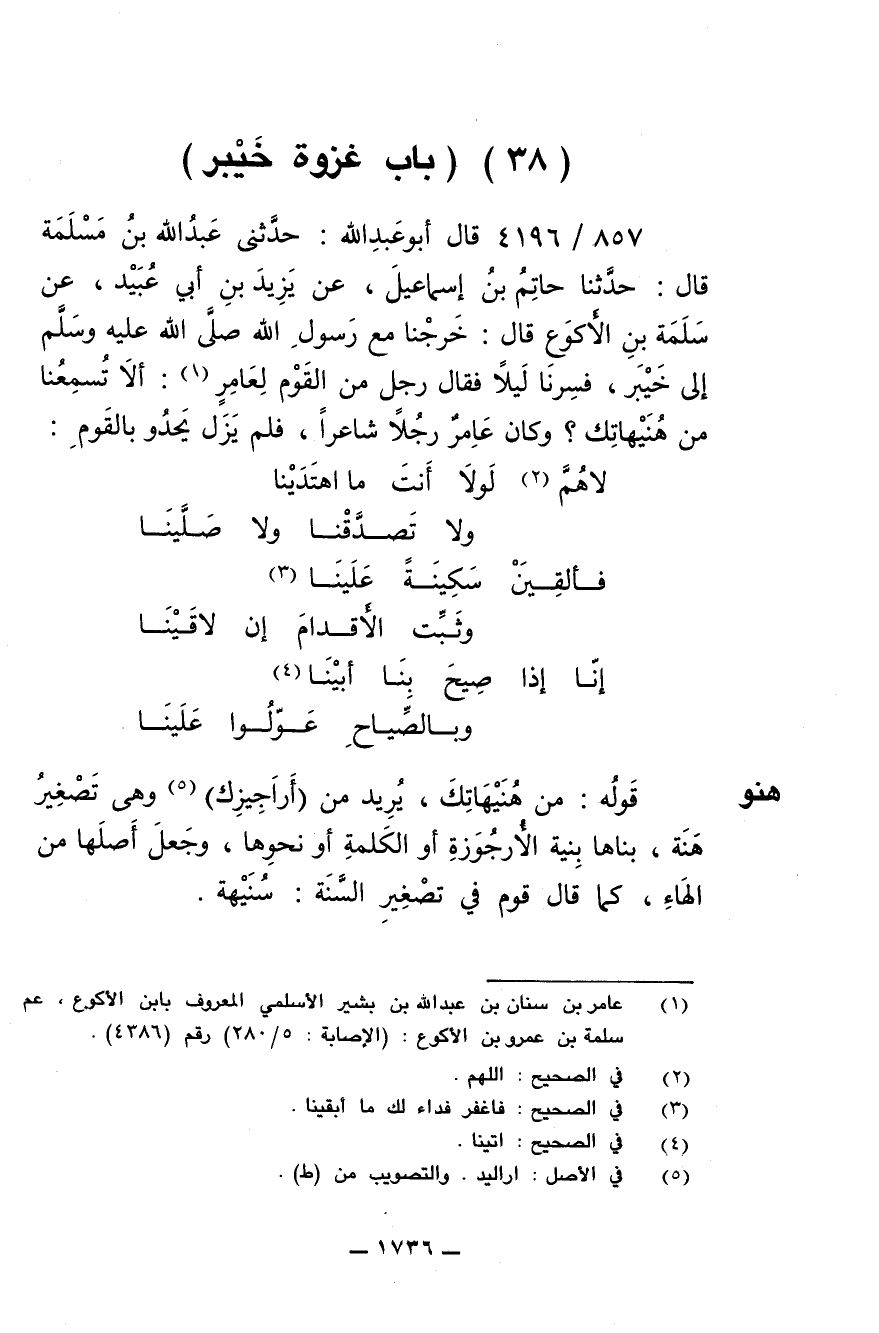 (٣٨) (باب غزوة خَيْبر)
٨٥٧ / ٤١٩٦ قال أبوعَبدِالله : حدَّثنى عَبدُالله بنُ مَسْلَمَة
قال : حدَّثنا حاتِمُ بنُ إسماعيلَ ، عن يَزِيدَ بنِ أبي عُبَيْد ، عن
سَلَمَة بنِ الأَكوَع قال : خَرجْنا مع رَسولِ الله صلَّى الله عليه وسَلَّم
إلى خَيْبَر ، فسِرنَا لَيلاً فقال رجل من القَوْم لِعَامِرٍ (١) : ألَا تُسمِعُنا
من هُنَيْهاتِك ؟ وكان عَامِرٌ رجُلاً شاعراً ، فلم يَزَل يَحدُو بالقَومِ :
لاهُمَّ (٢) لَولَا أَنتَ ما اهتَدَيْنا
ولا تَصدَّقْنا ولا صَلَّينَا
فألقِينَنْ سَكِينَةً عَلَينَا (٣)
وثَبِّت الأَقدامَ إن لاقَيْنَا
إنّا إذا صِيحَ بِنَا أبيْنَا (٤)
وبالصِّياحِ عَوّلُوا عَلَينَا
هنو قَولُه : من هُنَيْهَاتِكَ ، يُرِيد من (أَراَجِيزِك) (٥) وهى تَصْغِيرُ
هَنَة ، بناها بِنية الأُرجُوَزةِ أو الكَلمةِ أو نحوِها ، وجَعلَ أَصلَها من
الهَاءِ ، كما قال قوم في تصْغِيرِ السَّنَة : سُنَيْهة .
(١) عامر بن سنان بن عبدالله بن بشير الأسلمي المعروف بابن الأكوع ، عم
سلمة بن عمرو بن الأكوع : (الإصابة : ٥/٢٨٠) رقم (٤٣٨٦) .
(٢) في الصحيح : اللهم .
(٣) في الصحيح : فاغفر فداء لك ما أبقينا .
(٤) في الصحيح : اتينا .
(٥) في الأصل : اراليد . والتصويب من (ط) .
ــ ١٧٣٦ ــ